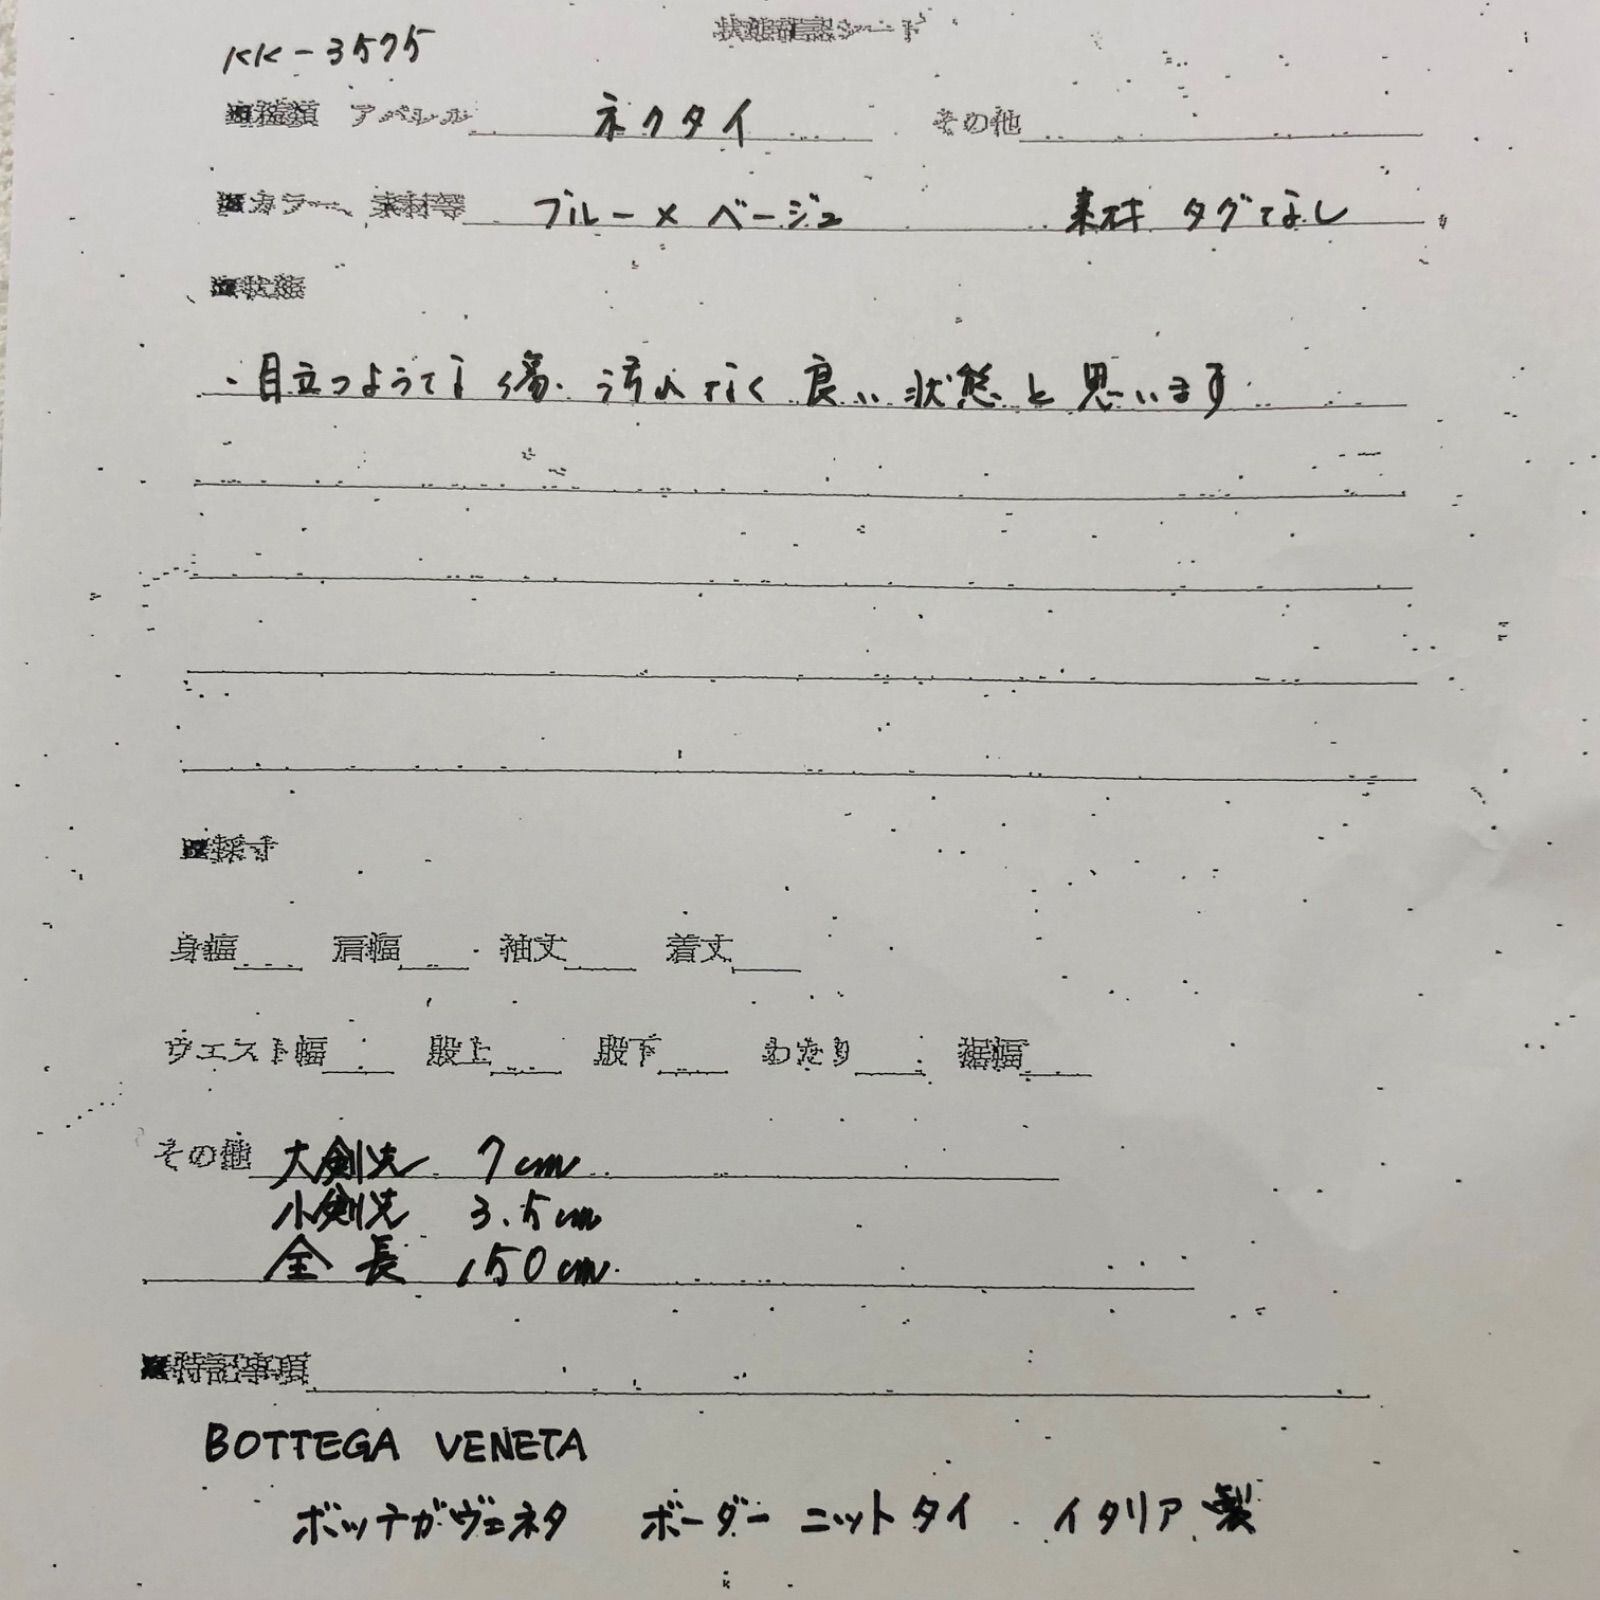 状態確認シート
KK-3575
■種類 アパレル ネクタイ その他
■カラー、素材等 ブルー×ベージュ 素材 タグなし
■状態
・目立つような傷、汚れなく良い状態と思います
■採寸
身幅 肩幅 袖丈 着丈
ウエスト幅 股上 股下 わたり 裾幅
その他 大剣先 7cm
小剣先 3.5cm
全長 150cm
■特記事項
BOTTEGA VENETA
ボッテガヴェネタ ボーダー ニットタイ イタリア製